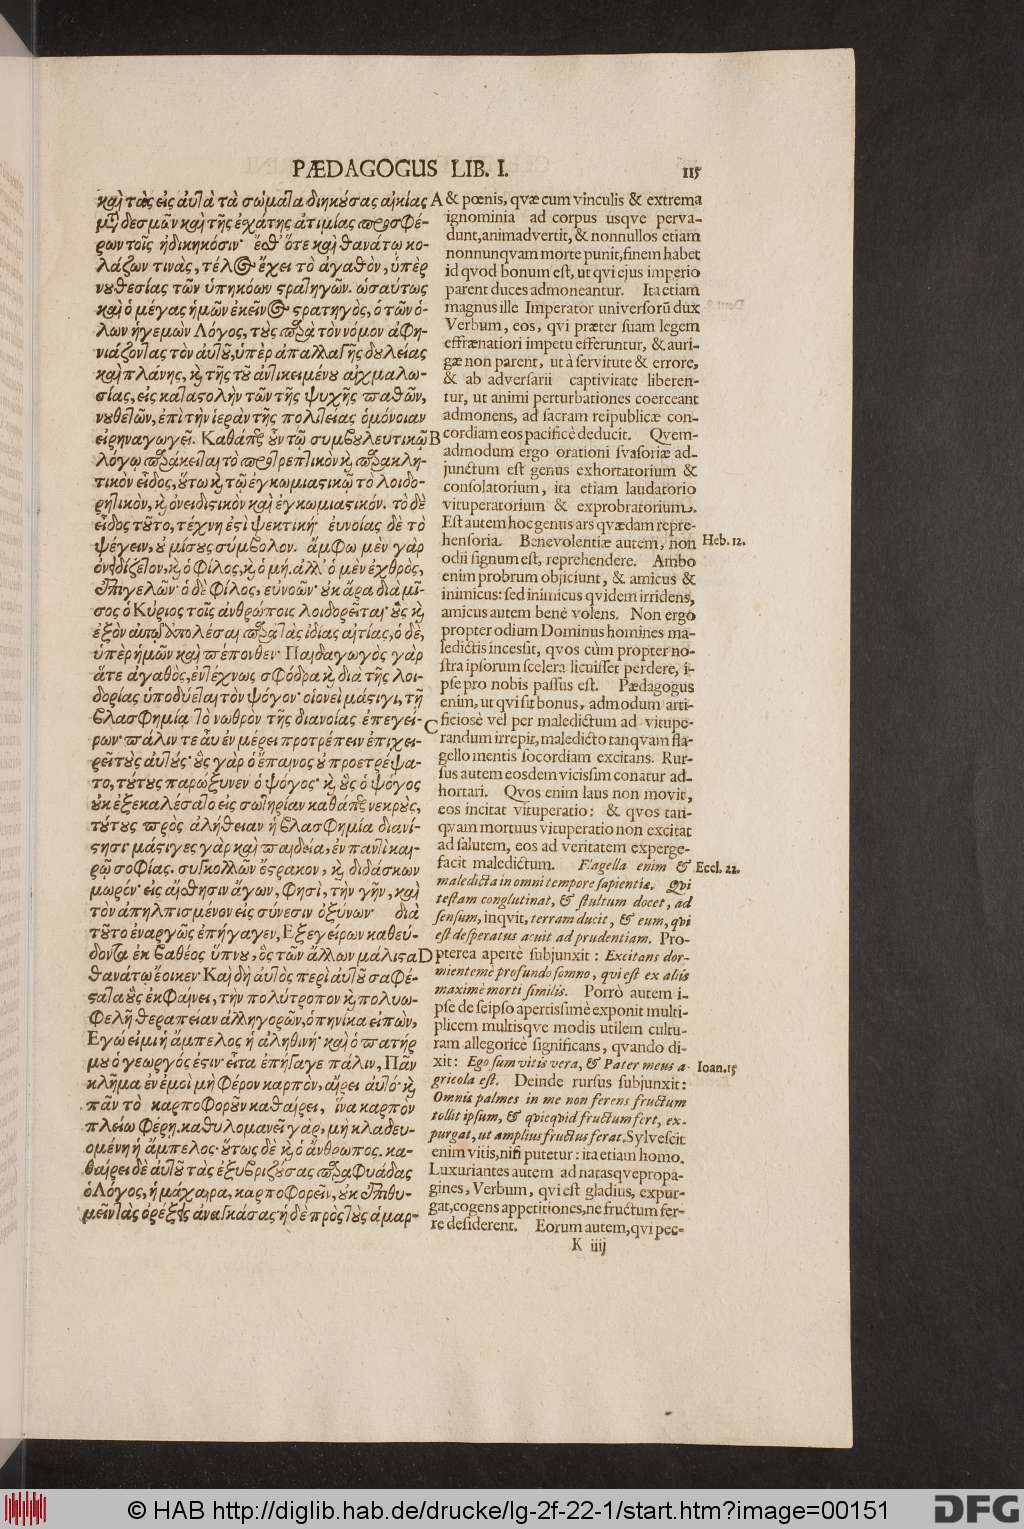 PÆDAGOGUS LIB. I.
115
καὶ τὰς εἰς αὐτὰ τὰ σώματα διηκούσας αἰκίας
μετὰ δεσμῶν καὶ τῆς ἐχάτης ἀτιμίας προσφέ-
ρων τοῖς ἠδικηκόσιν· ἔσθ' ὅτε καὶ θανάτῳ κο-
λάζων τινὰς, τέλος ἔχει τὸ ἀγαθὸν, ὑπὲρ
νουθεσίας τῶν ὑπηκόων στρατηγῶν. ὡσαύτως
καὶ ὁ μέγας ἡμῶν ἐκεῖνος στρατηγὸς, ὁ τῶν ὅ-
λων ἡγεμὼν Λόγος, τοὺς παρὰ τὸν νόμον ἀφη-
νιάζοντας τὸν αὑτοῦ, ὑπὲρ ἀπαλλαγῆς δουλείας
καὶ πλάνης, καὶ τῆς τοῦ ἀντικειμένου αἰχμαλω-
σίας, εἰς καταστολὴν τῶν τῆς ψυχῆς παθῶν,
νουθετῶν, ἐπὶ τὴν ἱερὰν τῆς πολιτείας ὁμόνοιαν
εἰρηναγωγεῖ. Καθάπερ οὖν τῷ συμβουλευτικῷ
λόγῳ παράκειται τὸ προτρεπτικὸν καὶ παρακλη-
τικὸν εἶδος, οὕτω καὶ τῷ ἐγκωμιαστικῷ τὸ λοιδο-
ρητικὸν, καὶ ὀνειδιστικὸν καὶ ἐγκωμιαστικόν. τὸ δὲ
εἶδος τοῦτο, τέχνη ἐστὶ ψεκτική· εὐνοίας δὲ τὸ
ψέγειν, οὐ μίσους σύμβολον. ἄμφω μὲν γὰρ
ὀνειδίζετον, καὶ ὁ φίλος, καὶ ὁ μή. ἀλλ' ὁ μὲν ἐχθρὸς,
ἐπιγελῶν· ὁ δὲ φίλος, εὐνοῶν· οὐκ ἄρα διὰ μῖ-
σος ὁ Κύριος τοῖς ἀνθρώποις λοιδορεῖται· οὓς καὶ
ἐξὸν αὐτῷ ἀπολέσαι παρὰ τὰς ἰδίας αἰτίας, ὁ δὲ,
ὑπὲρ ἡμῶν καὶ πέπονθεν· Παιδαγωγὸς γὰρ
ἅτε ἀγαθὸς, ἐντέχνως σφόδρα καὶ διὰ τῆς λοι-
δορίας ὑποδύεται τὸν ψόγον· οἱονεὶ μάστιγι, τῇ
βλασφημίᾳ τὸ νωθρὸν τῆς διανοίας ἐπεγεί-
ρων· πάλιν τε αὖ ἐν μέρει προτρέπειν ἐπιχει-
ρεῖ τοὺς αὐτούς· οὓς γὰρ ὁ ἔπαινος οὐ προετρέψα-
το, τούτους παρώξυνεν ὁ ψόγος· καὶ οὓς ὁ ψόγος
οὐκ ἐξεκαλέσατο εἰς σωτηρίαν καθάπερ νεκροὺς,
τούτους πρὸς ἀλήθειαν ἡ βλασφημία διανί-
στησι· μάστιγες γὰρ καὶ παιδεία, ἐν παντὶ και-
ρῷ σοφίας. συγκολλῶν ὄστρακον, καὶ διδάσκων
μωρόν· εἰς αἴσθησιν ἄγων, φησὶ, τὴν γῆν, καὶ
τὸν ἀπηλπισμένον εἰς σύνεσιν ὀξύνων· διὰ
τοῦτο ἐναργῶς ἐπήγαγεν, Ἐξεγείρων καθεύ-
δοντα ἐκ βαθέος ὕπνου, ὃς τῶν ἄλλων μάλιστα
θανάτῳ ἔοικεν· Καὶ δὴ αὐτὸς περὶ αὑτοῦ σαφέ-
στατα οὓς ἐκφαίνει, τὴν πολύτροπον καὶ πολυω-
φελῆ θεραπείαν ἀλληγορῶν, ὁπηνίκα εἰπὼν,
Ἐγώ εἰμι ἡ ἄμπελος ἡ ἀληθινή· καὶ ὁ πατήρ
μου ὁ γεωργός ἐστιν· εἶτα ἐπήγαγε πάλιν, Πᾶν
κλῆμα ἐν ἐμοὶ μὴ φέρον καρπὸν, αἴρει αὐτό· καὶ
πᾶν τὸ καρποφοροῦν καθαίρει, ἵνα καρπὸν
πλείω φέρῃ. καθυλομανεῖ γὰρ, μὴ κλαδευ-
ομένη ἡ ἄμπελος· οὕτως δὲ καὶ ὁ ἄνθρωπος. κα-
θαίρει δὲ αὐτοῦ τὰς ἐξυβριζούσας παραφυάδας
ὁ Λόγος, ἡ μάχαιρα, καρποφορεῖν, οὐκ ἐπιθυ-
μεῖν τὰς ὀρέξεις ἀναγκάσας· ἡ δὲ πρὸς τοὺς ἁμαρ-
A
B
C
D
& pœnis, qvæ cum vinculis & extrema
ignominia ad corpus usqve perva-
dunt, animadvertit, & nonnullos etiam
nonnunqvam morte punit, finem habet
id qvod bonum est, ut qvi ejus imperio
parent duces admoneantur. Ita etiam
magnus ille Imperator universorũ dux
Verbum, eos, qvi præter suam legem
effrænatiori impetu efferuntur, & auri-
gæ non parent, ut à servitute & errore,
& ab adversarii captivitate liberen-
tur, ut animi perturbationes coerceant
admonens, ad sacram reipublicæ con-
cordiam eos pacificè deducit. Qvem-
admodum ergo orationi svasoriæ ad-
junctum est genus exhortatorium &
consolatorium, ita etiam laudatorio
vituperatorium & exprobratorium.
Est autem hoc genus ars qvædam repre-
hensoria. Benevolentiæ autem, non
odii signum est, reprehendere. Ambo
enim probrum objiciunt, & amicus &
inimicus: sed inimicus qvidem irridens,
amicus autem benè volens. Non ergo
propter odium Dominus homines ma-
ledictis incessit, qvos cùm propter no-
stra ipsorum scelera licuisset perdere, i-
pse pro nobis passus est. Pædagogus
enim, ut qvi sit bonus, admodum arti-
ficiosè vel per maledictum ad vitupe-
randum irrepit, maledicto tanqvam fla-
gello mentis socordiam excitans. Rur-
sus autem eosdem vicissim conatur ad-
hortari. Qvos enim laus non movit,
eos incitat vituperatio: & qvos tan-
qvam mortuus vituperatio non excitat
ad salutem, eos ad veritatem experge-
facit maledictum. Flagella enim &
maledicta in omni tempore sapientiæ. Qvi
testam conglutinat, & stultum docet, ad
sensum, inqvit, terram ducit, & eum, qvi
est desperatus acuit ad prudentiam. Pro-
pterea apertè subjunxit: Excitans dor-
mientemè profundo somno, qvi est ex aliis
maximè morti similis. Porrò autem i-
pse de seipso apertissimè exponit multi-
plicem multisqve modis utilem cultu-
ram allegoricè significans, qvando di-
xit: Ego sum vitis vera, & Pater meus a-
gricola est. Deinde rursus subjunxit:
Omnis palmes in me non ferens fructum
tollit ipsum, & qvicqvid fructum fert, ex-
purgat, ut amplius fructus ferat. Sylvescit
enim vitis, nisi putetur: ita etiam homo.
Luxuriantes autem adnatasqve propa-
gines, Verbum, qvi est gladius, expur-
gat, cogens appetitiones, ne fructum fer-
re desiderent. Eorum autem, qvi pec-
Heb. 12.
Eccl. 22.
Ioan. 15
K iiij
© HAB http://diglib.hab.de/drucke/lg-2f-22-1/start.htm?image=00151
DFG